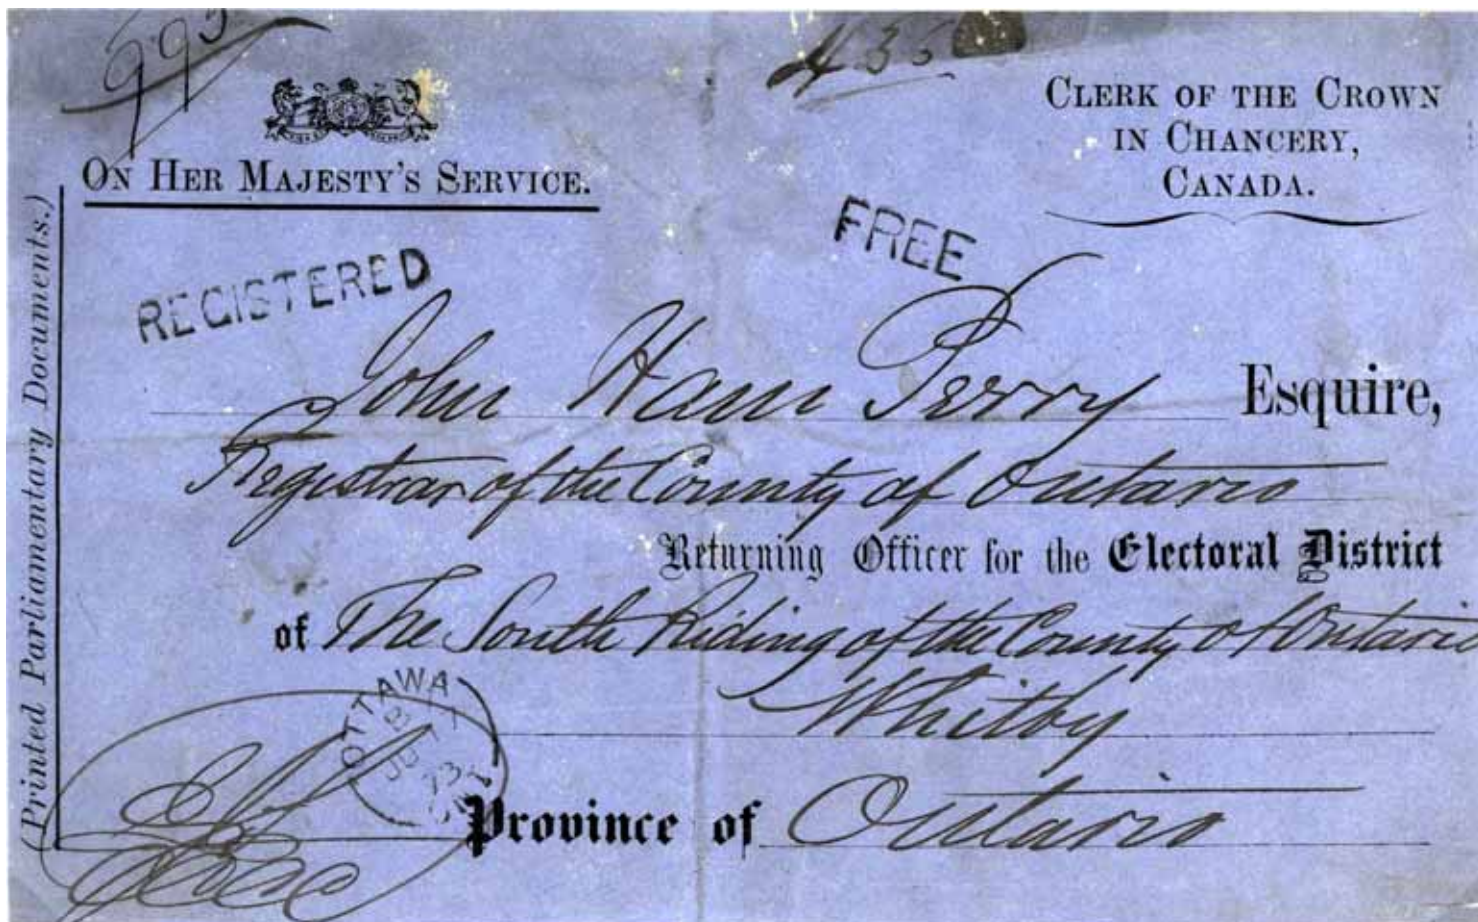 995
436
ON HER MAJESTY'S SERVICE.
CLERK OF THE CROWN
IN CHANCERY,
CANADA.
(Printed Parliamentary Documents.)
REGISTERED
FREE
John Ham Perry Esquire,
Registrar of the County of Ontario
Returning Officer for the Electoral District
of The South Riding of the County of Ontario
Whitby
OTTAWA
73
Province of Ontario